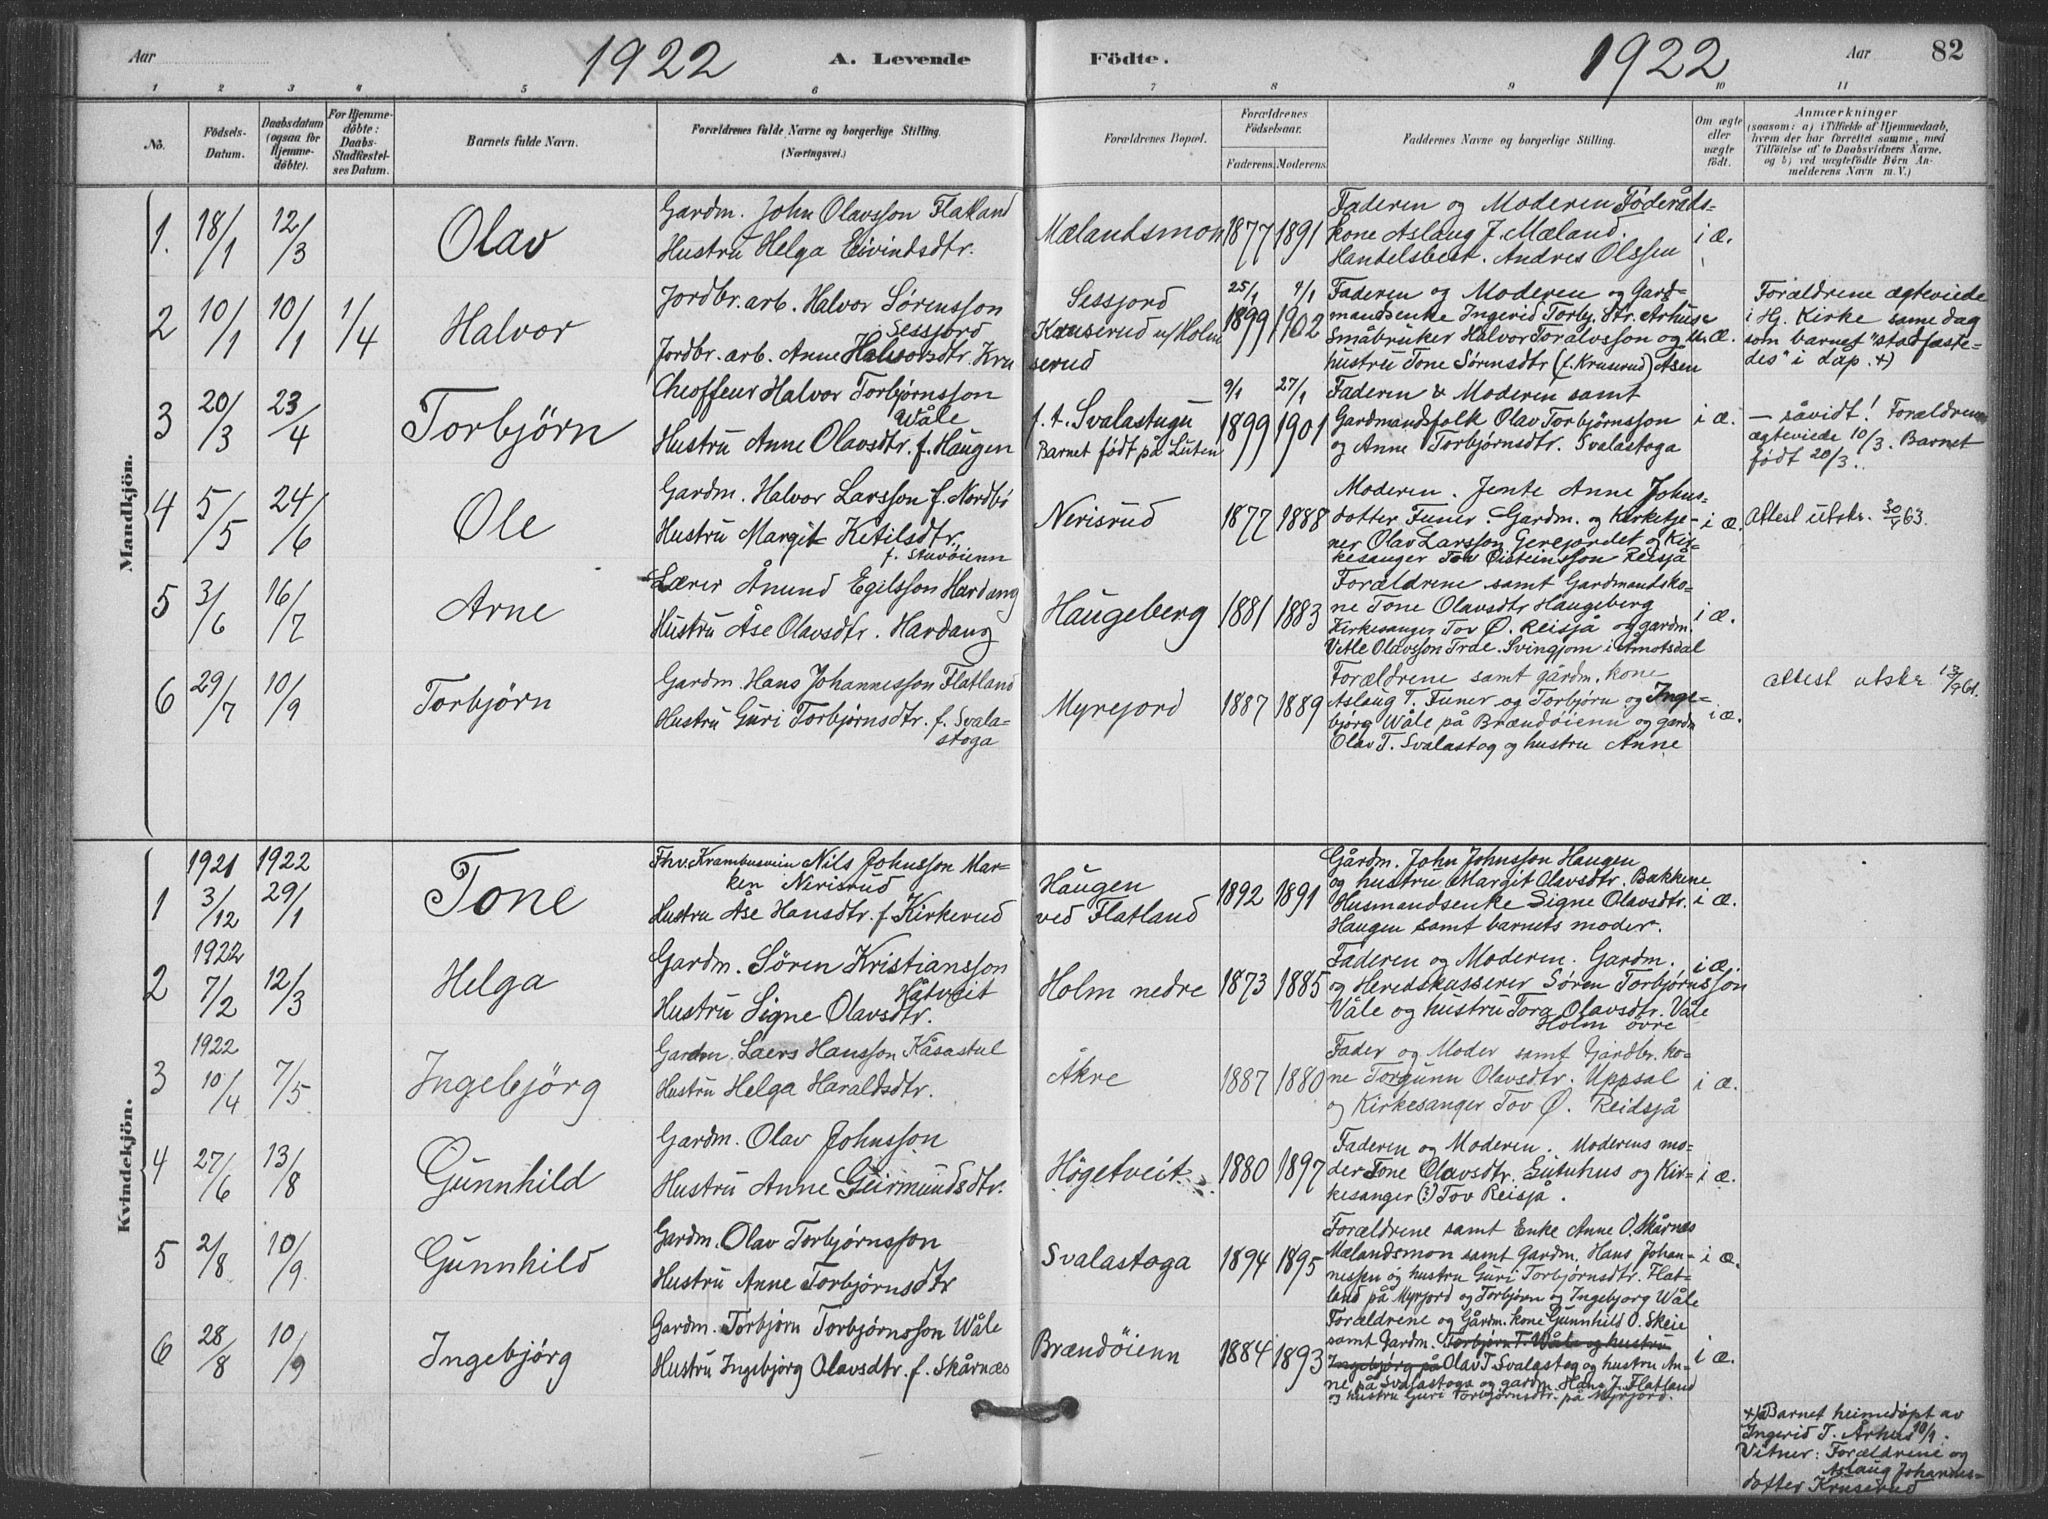 Aar 1922 A. Levende Fødte. 1922 Aar 82
1 2 3 4 5 6 7 8 9 10 11
No.
Fødsels-
Datum.
Daabsdatum
(ogsaa for
Hjemme-
døbte).
For Hjemme-
døbte:
Daabs-
Stadfæstel-
ses Datum.
Barnets fulde Navn.
Forældrenes fulde Navne og borgerlige Stilling.
(Næringsvei.)
Forældrenes Bopæl.
Forældrenes
Fødselsaar.
Faderens. Moderens.
Faddernes Navne og borgerlige Stilling.
Om ægte
eller
uægte
født.
Anmærkninger
(saasom: a) i Tilfælde af Hjemmedaab,
hvem der har forrettet samme, med
Tilføielse af to Daabsvidners Navne,
og b) ved uægtefødte Børn An-
melderens Navn m. V.)
Mandkjön.
1. 18/1 12/3
Olav
Gardm. John Olavsson Flatland
Hustru Helga Eivindsdtr.
Mælandsmon
1877 1891
Faderen og Moderen Föderåds-
kone Aslaug J. Mæland.
Handelsbest. Andres Olssen
i æ.
2 10/1 10/1 1/4
Halvor
Jordbr. arb. Halvor Sørensson
Sessjord
Jordbr. arb. Anne Halvorsdtr. Kru
serud
Sessjord
Kruserud u/Holm
25/1 1899 4/1 1902
Faderen og Moderen og Gard-
mandsenke Ingerid Torbj. dtr. Århus
Småbruker Halvor Toralvsson og
hustru Tone Sørensdtr (f. Kruserud) Åsen
u. æ.
Forældrene ægteviede
i Hj. Kirke same dag
som barnet "stadfæste-
des" i dåp. +)
3 20/3 23/4
Torbjørn
Cheoffeur Halvor Torbjørnsson
Wåle
Hustru Anne Olavsdtr. f. Haugen
f. t. Svalastugu
Barnet født på Luten
9/1 1899 27/1 1901
Faderen & Moderen samt
Gardmandsfolk Olav Torbjørnsson
og Anne Torbjørnsdtr. Svalastoga
i æ.
— såvidt! Forældrene
ægteviede 10/3. Barnet
født 20/3.
4 5/5 24/6
Ole
Gardm. Halvor Larsson f. Nordbø
Hustru Margit Ketilsdtr.
f. Stuvøienn
Nerisrud
1877 1888
Moderen. Jente Anne Johns-
dotter Funer. Gardm. og Kirketje-
ner Olav Larsson Gerejordet og Kir-
kesanger Tov Øisteinsson Reisjå
i æ.
Attest utskr. 30/4 63.
5 3/6 16/7
Arne
Lærer Åmund Egilsson Hardang
Hustru Åse Olavsdtr. Hardang
Haugeberg
1881 1883
Forældrene samt Gardmandsko-
ne Tone Olavsdtr Haugeberg
Kirkesanger Tov Ø. Reisjå og gardm.
Vetle Olavsson Trae. Svingjom i Åmotsdal
i æ.
6 29/7 10/9
Torbjørn
Gardm. Hans Johannesson Flatland
Hustru Guri Torbjørnsdtr. f. Svala-
stoga
Myrejord
1887 1889
Forældrene samt gårdm. kone
Aslaug T. Funer og Torbjørn og Inge-
bjørg Wåle på Brændøienn og gardm
Olav T. Svalastog og hustru Anne
i æ.
Attest utskr 13/9 61.
Kvindekjön.
1 1921 3/12 1922 29/1
Tone
Fhv. Krambusvein Nils Johnsson Mar-
ken Nerisrud
Hustru Åse Hansdtr. f. Kirkerud
Haugen
ved Flatland
1892 1891
Gårdm. John Johnsson Haugen
og hustru Margit Olavsdtr. Bakkene
Husmandsenke Signe Olavsdtr.
Haugen samt barnets moder.
i æ.
2 1922 7/2 12/3
Helga
Gardm. Søren Kristiansson
Håtveit
Hustru Signe Olavsdtr.
Holm nedre
1873 1885
Faderen og Moderen. Gardm.
og Heredskasserer Søren Torbjørnsson
Våle og hustru Tora Olavsdtr. Våle
Holm övre
i æ.
3 1922 10/4 7/5
Ingebjörg
Gardm. Laers Hansson Kåsastul
Hustru Helga Haraldsdtr.
Åkre
1887 1880
Fader og Moder samt Gardbr. ko-
ne Torgunn Olavsdtr. Uppsal
og Kirkesanger Tov Ø. Reidsjå
i æ.
4 27/6 13/8
Gunnhild
Gardm. Olav Johnsson
Hustru Anne Geirmundsdtr.
Högetveit
1880 1897
Faderen og Moderen. Moderens mo-
der Tone Olavsdtr. Lutuhus og Kir-
kesanger (:) Tov Reisjå.
i æ.
5 2/8 10/9
Gunnhild
Gardm. Olav Torbjørnsson
Hustru Anne Torbjørnsdtr
Svalastoga
1894 1895
Forældrene samt Enke Anne O. Skårnes
Mælandsmon samt gardm. Hans Johan-
nessen og hustru Guri Torbjørnsdtr. Flat-
land på Myrjord og Torbjørn og Ingebjorg Wåle
i æ.
6 28/8 10/9
Ingebjörg
Gardm. Torbjørn Torbjørnsson Wåle
Hustru Ingebjörg Olavsdtr. f. Skårnæs
Brændöienn
1884 1893
Forældrene og Gårdm. kone Gunnhild O. Skeie
samt Gardm. Torbjørn T. Wåle og hustru
Ingebjørg på Olav T. Svalastog og hustru An-
ne på Svalastoga og gardm. Hans J. Flatland
og hustru Guri Torbjørnsdtr. på Myrjord.
i æ.
+) Barnet heimedöpt av
Ingerid T. Århus 10/1.
Vitner: Forældrene og
Aslaug Johannes-
dotter Kruserud